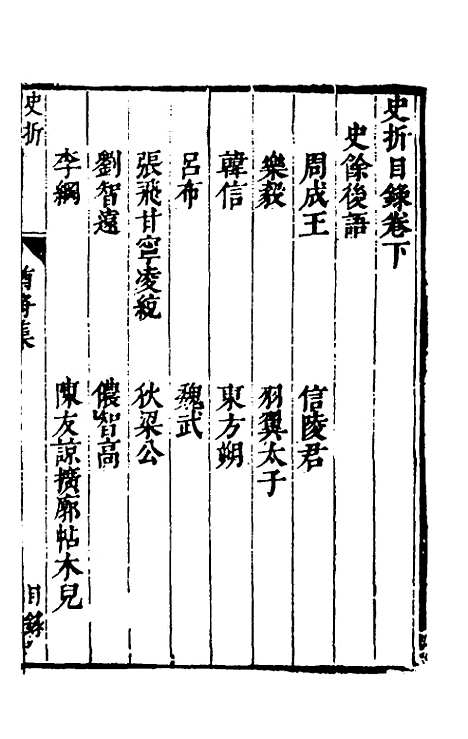 史折目錄卷下
史餘後語
周成王　信陵君
樂毅　羽翼太子
韓信　東方朔
呂布　魏武
張飛甘寧凌統　狄梁公
劉智遠　儂智高
李綱　陳友諒擴廓帖木兒
史折
目錄